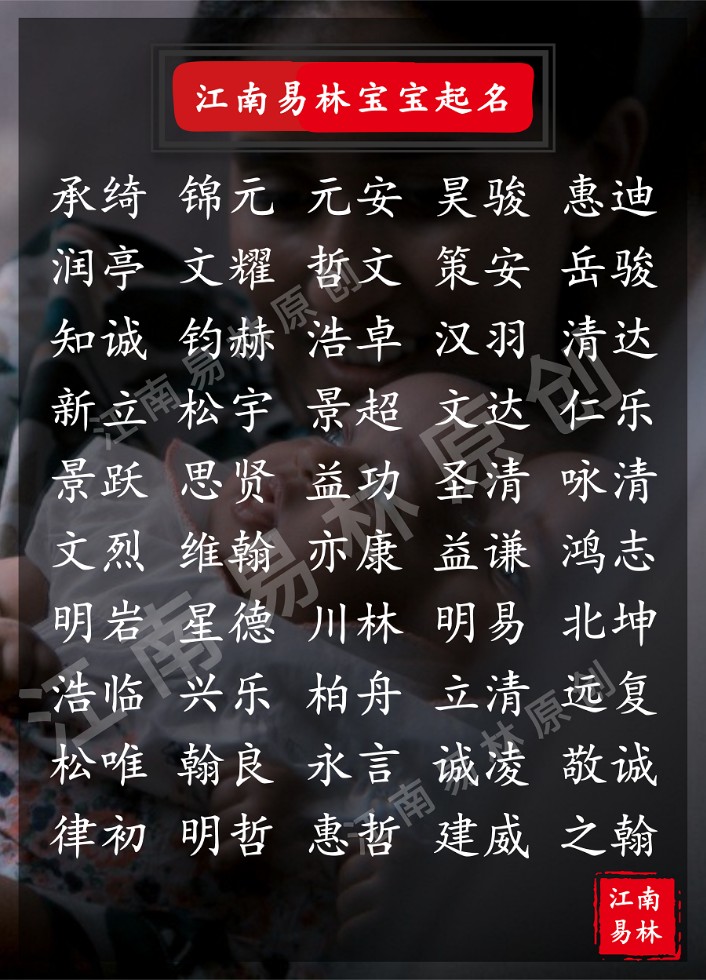 江南易林宝宝起名
承绮 锦元 元安 昊骏 惠迪
润亭 文耀 哲文 策安 岳骏
知诚 钧赫 浩卓 汉羽 清达
新立 松宇 景超 文达 仁乐
景跃 思贤 益功 圣清 咏清
文烈 维翰 亦康 益谦 鸿志
明岩 星德 川林 明易 北坤
浩临 兴乐 柏舟 立清 远复
松唯 翰良 永言 诚凌 敬诚
律初 明哲 惠哲 建威 之翰
江南易林原创
江南易林原创
江南易林原创
江南
易林